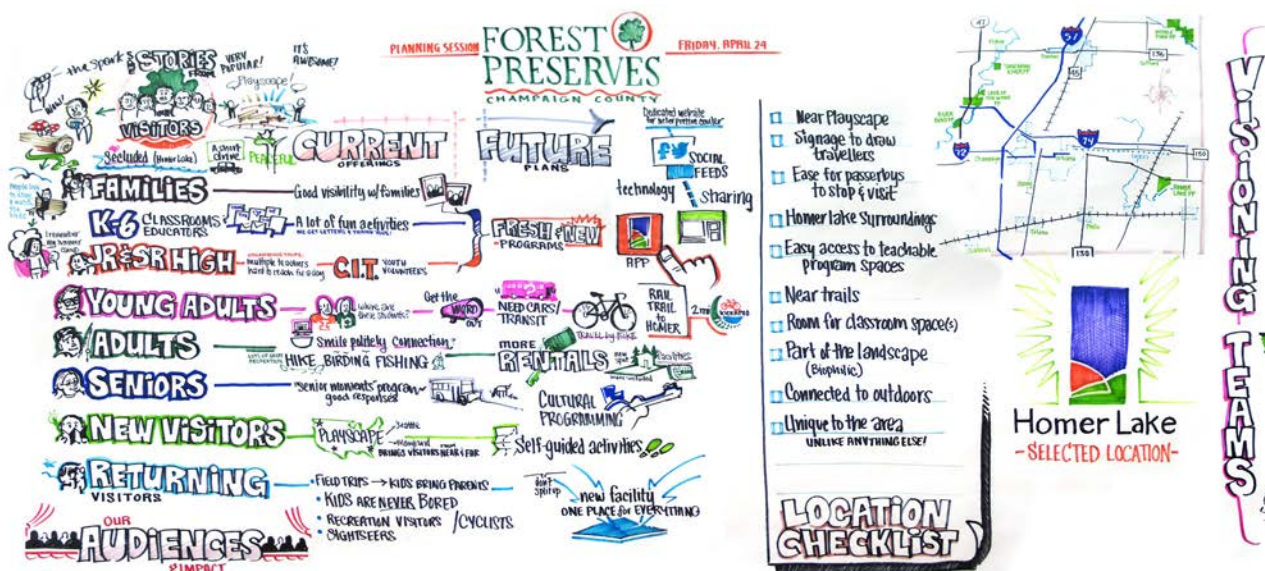 PLANNING SESSION
FOREST
PRESERVES
CHAMPAIGN COUNTY
FRIDAY, APRIL 24
the spark
STORIES
FROM
VISITORS
VERY
POPULAR!
IT'S
AWESOME!
Playscape!
WOW!
Secluded (Homer Lake)
A short
drive
PEACEFUL
CURRENT
OFFERINGS
FUTURE
PLANS
FAMILIES
Good visibility w/families
K-6 CLASSROOMS &
EDUCATORS
A lot of fun activities
WE GET LETTERS & THANK YOUS!
JR & SR HIGH
multiple teachers
hard to reach for a day
C.I.T. YOUTH
VOLUNTEERS
I remember
my summer
camp
FRESH & NEW
-PROGRAMS
YOUNG ADULTS
where are
these students?
Get the
WORD
OUT
NEED CARS/
TRANSIT
TRAVEL by BIKE
RAIL
TRAIL
to
HOMER
2 mi
KICKAPOO
ADULTS
Smile politely connection
HIKE, BIRDING FISHING
MORE
RENTALS
new
facilities
SENIORS
"senior moments" program~
good responses
CULTURAL
PROGRAMMING
NEW VISITORS
PLAYSCAPE
Seattle
Maryland
BRINGS VISITORS FROM NEAR & FAR
Self-guided activities
RETURNING
VISITORS
• FIELD TRIPS → KIDS BRING PARENTS
• KIDS ARE NEVER BORED
• RECREATION VISITORS / CYCLISTS
• SIGHTSEERS
don't
split up
new facility
ONE PLACE for EVERYTHING
OUR
AUDIENCES
& IMPACT
Dedicated website
for interpretive center
SOCIAL
FEEDS
technology
sharing
APP
Near Playscape
Signage to draw
travellers
Ease for passerbys
to stop & visit
Homer lake Surroundings
Easy access to teachable
program spaces
Near trails
Room for classroom space(s)
Part of the landscape
(Biophilic)
Connected to outdoors
Unique to the area
UNLIKE ANYTHING ELSE!
LOCATION
CHECKLIST
47
57
136
45
74
72
150
130
Homer Lake
-SELECTED LOCATION-
VISIONING - TEAMS